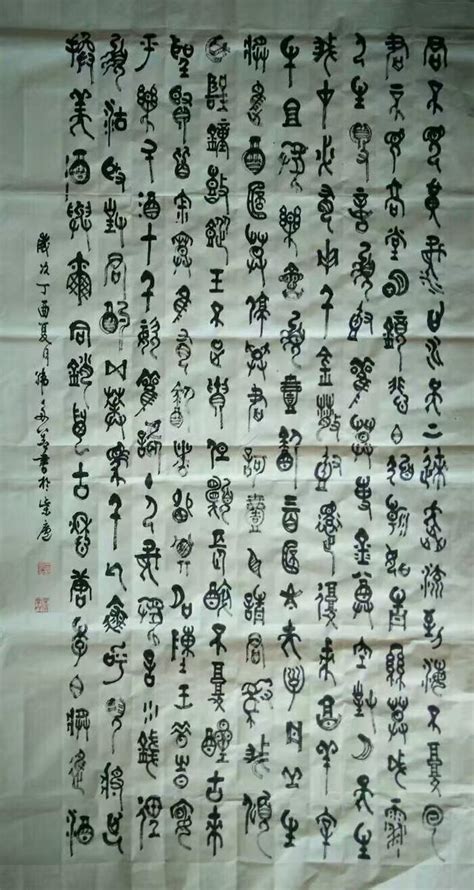 君不見黄河之水天上來奔流到海不復回
君不見高堂明鏡悲白髮朝如青絲暮成雪
人生得意須盡歡莫使金尊空對月天生
我材必有用千金散盡還復來烹羊宰
牛且為樂會須一飲三百杯岑夫子丹丘生
將進酒杯莫停與君歌一曲請君為我傾
耳聽鐘鼓饌玉不足貴但願長醉不願醒古來
聖賢皆寂寞惟有飲者留其名陳王昔時宴
平樂斗酒十千恣歡謔主人何為言少錢徑
須沽取對君酌五花馬千金裘呼兒將出
換美酒與爾同銷萬古愁李白將進酒
歲次丁酉夏月書於